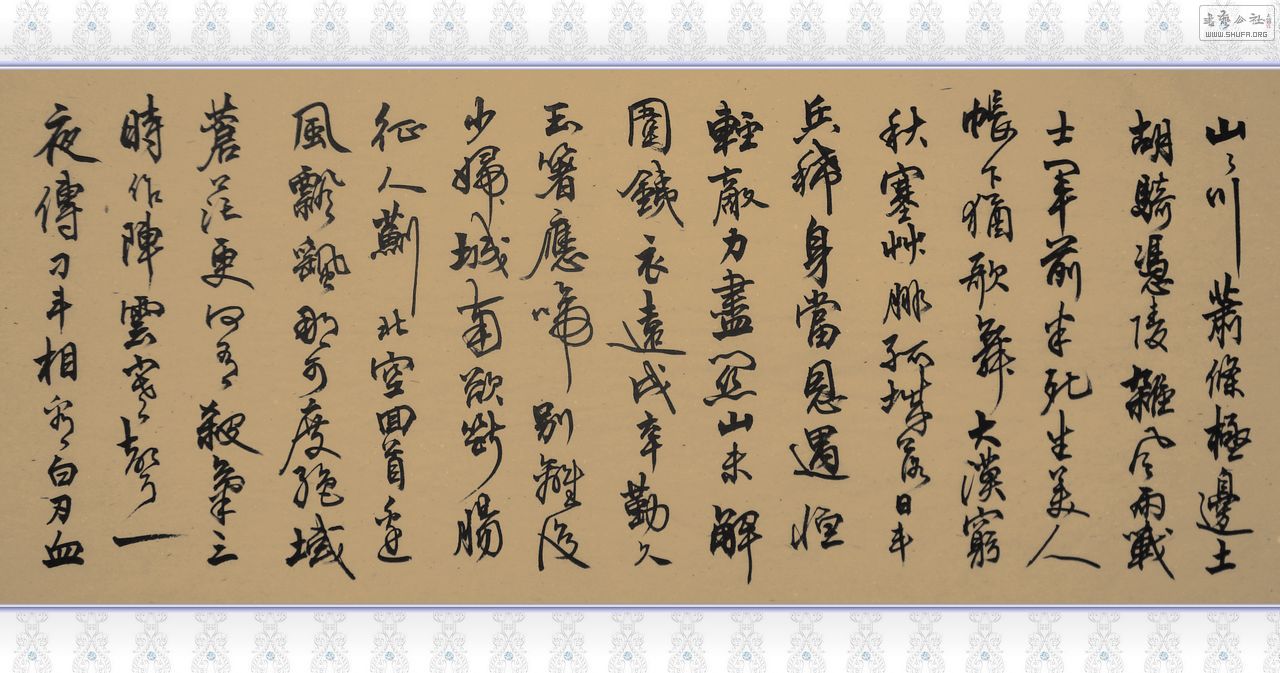 山々川蕭條極邊土
胡騎憑陵雜風雨戰
士軍前半死生美人
帳下猶歌舞大漠窮
秋塞艸腓孤城落日斗
兵稀身當恩遇恒
輕敵力盡關山未解
圍鐵衣遠戍辛勤久
玉箸應啼別離後
少婦城南欲斷腸
征人薊北空回首邊
風飄飄那可度絕域
蒼茫更何有殺氣三
時作陣雲寒聲一
夜傳刁斗相看白刃血
書藝公社
WWW.SHUFA.ORG